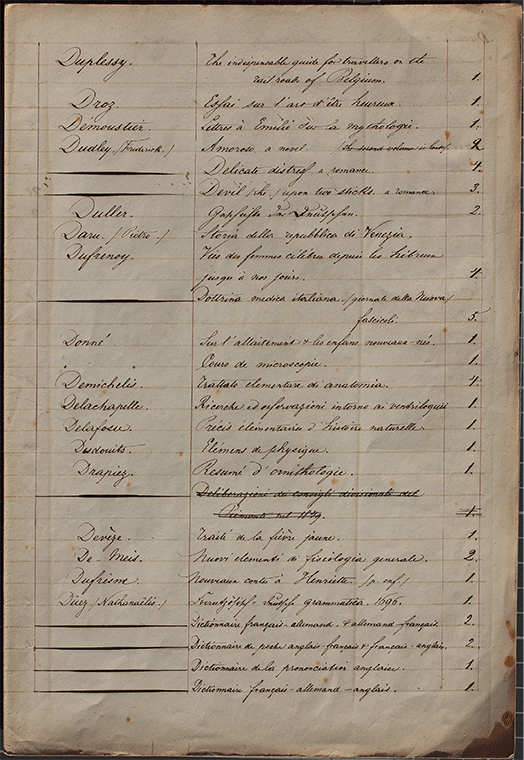 Duplessy. The indispensable guide for travellers on the
rail roads of Belgium. 1.
Droz Essai sur l'art d'être heureux. 1.
Démoustier. Lettres à Emilie sur la mythologie. 1.
Dudley (Frederick.) Amoroso, a novel. the second volume is 2.
Delicate distress a romance. 4.
Devil (the) upon two sticks. a romance. 3.
Duller. 2.
Daru. (Pietro.) Storia della repubblica di Venezia.
Dufrenoy. Vies des femmes célèbres depuis les hébreux
jusqu'à nos jours. 4.
Dottrina medica italiana. (giornale della Nuova)
fascicoli. 5.
Donné Sur l'allaitement & les enfans nouveaux-nés. 1.
Cours de microscopie. 1.
Demichelis. Trattato elementare di anatomia. 4.
Delachapelle. Ricerche ed osservazioni intorno ai ventriloqui 1.
Delafosse Précis élémentaires d'histoire naturelle. 1.
Desdouits. Elémens de physique. 1.
Drapiez. Résumé d'ornithologie. 1.
Deliberazioni dei consigli divisionali del
Piemonte nel 1849. 1.
Devèze. Traité de la fièvre jaune. 1.
De-Meis. Nuovi elementi di fisiologia generale. 2.
Dufrésne Nouveaux contes à Henriette. (p. enf.) 1.
Düez (Nathanaëlis) grammatica. 1696. 1.
Dictionnaire français-allemand, & allemand-français. 2.
Dictionnaire de poche anglais-français & français-anglais. 2.
Dictionnaire de la prononciation anglaise. 1.
Dictionnaire français-allemand-anglais. 1.